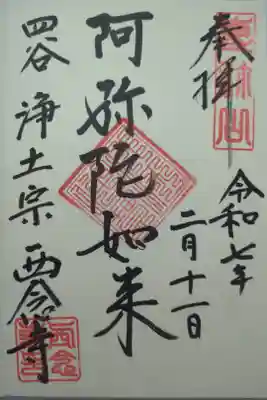 奉拝
令和七年
二月十一日
阿弥陀如来
四谷 浄土宗 西念寺
西念